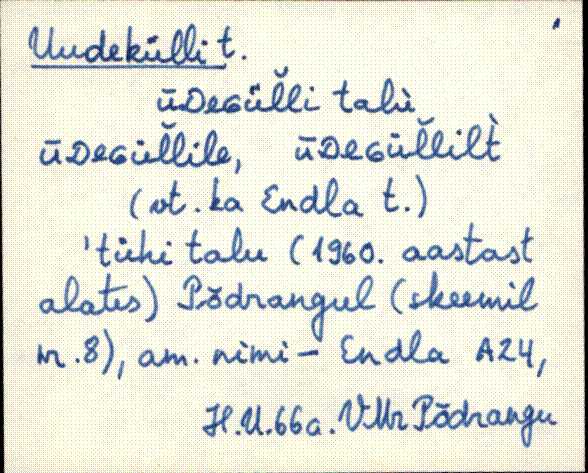 Uudekülli t.
ūDeGüľ̆li talù
ūDeGüľ̆lile, ūDeGüľ̆lilt̀
(vt. ka Endla t.)
'tühi talu (1960. aastast
alates) Põdrangul (skeemil
nr. 8), am. nimi – Endla A24,
H.U.66a. VMr Põdrangu